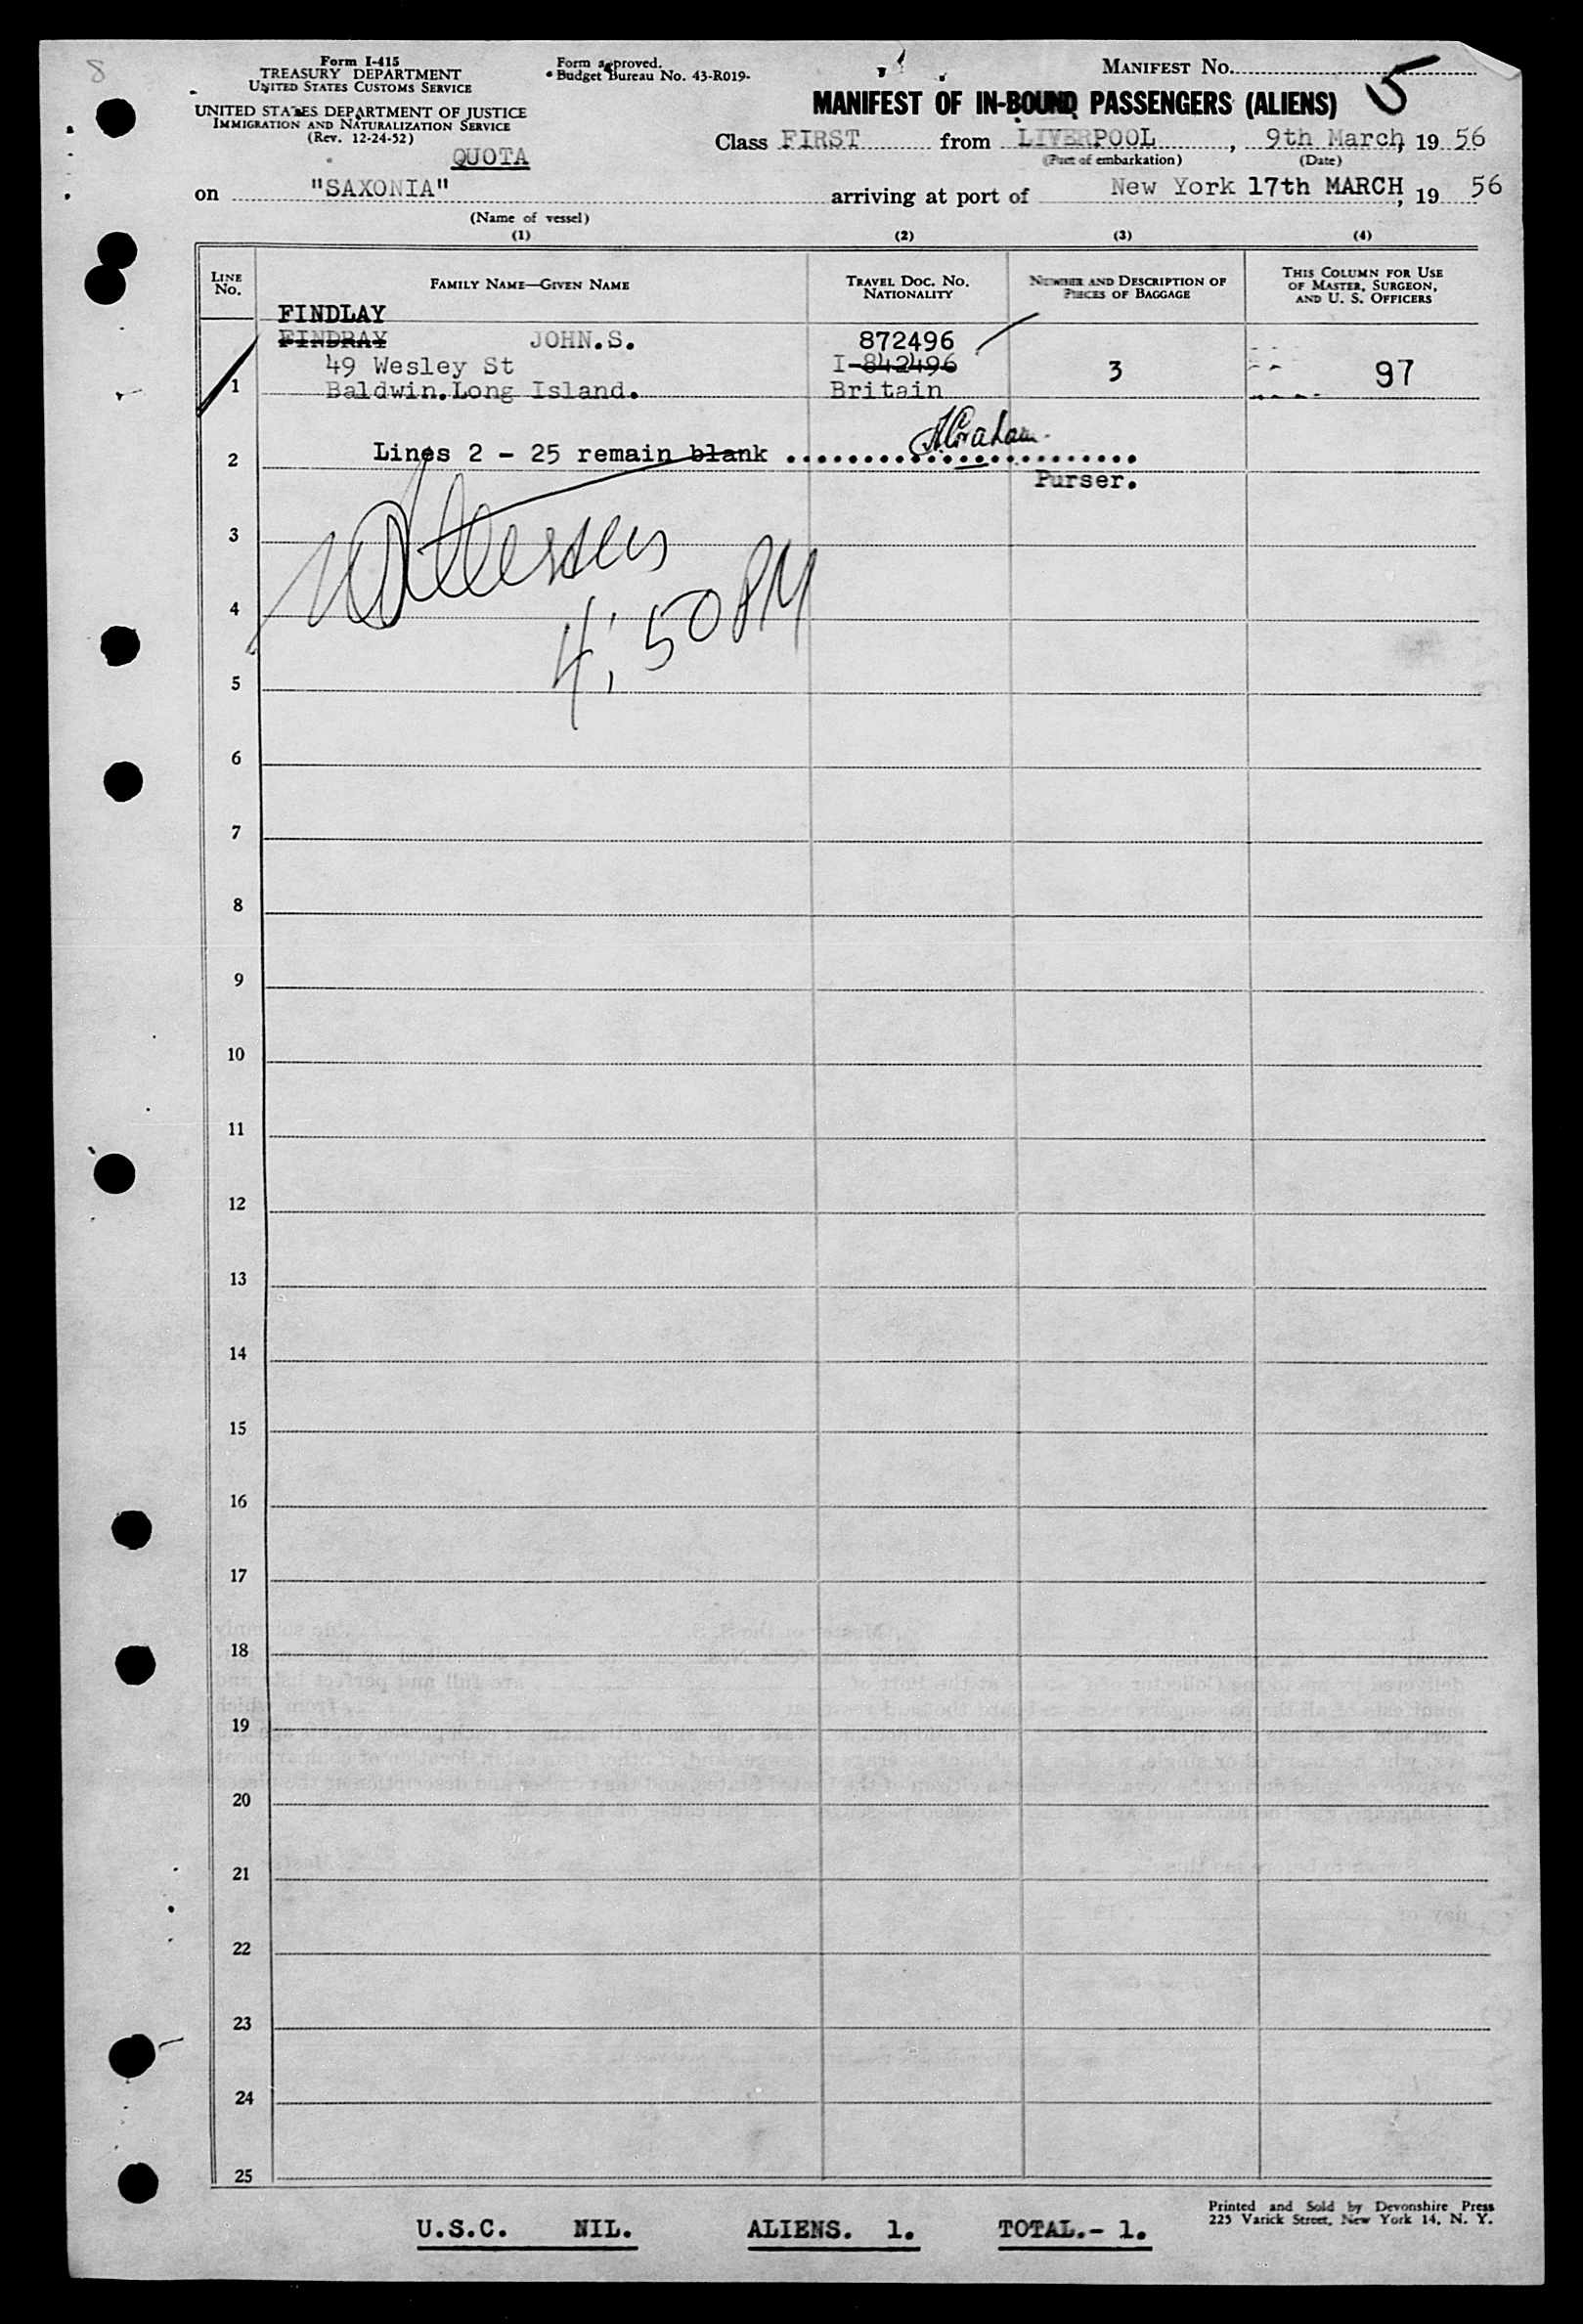 8
Form I-415
TREASURY DEPARTMENT
UNITED STATES CUSTOMS SERVICE
UNITED STATES DEPARTMENT OF JUSTICE
IMMIGRATION AND NATURALIZATION SERVICE
(Rev. 12-24-52)
Form approved.
Budget Bureau No. 43-R019-
MANIFEST No.
5
MANIFEST OF IN-BOUND PASSENGERS (ALIENS)
QUOTA
Class FIRST from LIVERPOOL, 9th March, 19 56
(Port of embarkation) (Date)
on "SAXONIA" arriving at port of New York 17th MARCH, 19 56
(Name of vessel)
(1) (2) (3) (4)
LINE No. FAMILY NAME—GIVEN NAME TRAVEL DOC. NO. NATIONALITY NUMBER AND DESCRIPTION OF PIECES OF BAGGAGE THIS COLUMN FOR USE OF MASTER, SURGEON, AND U. S. OFFICERS
FINDLAY
FINDRAY JOHN.S. 872496
49 Wesley St I-842496 3 97
1 Baldwin.Long Island. Britain
2 Lines 2 - 25 remain blank ........................
Purser.
3
4
4:50 PM
5
6
7
8
9
10
11
12
13
14
15
16
17
18
19
20
21
22
23
24
25
U.S.C. NIL. ALIENS. 1. TOTAL.- 1.
Printed and Sold by Devonshire Press
225 Varick Street, New York 14, N. Y.